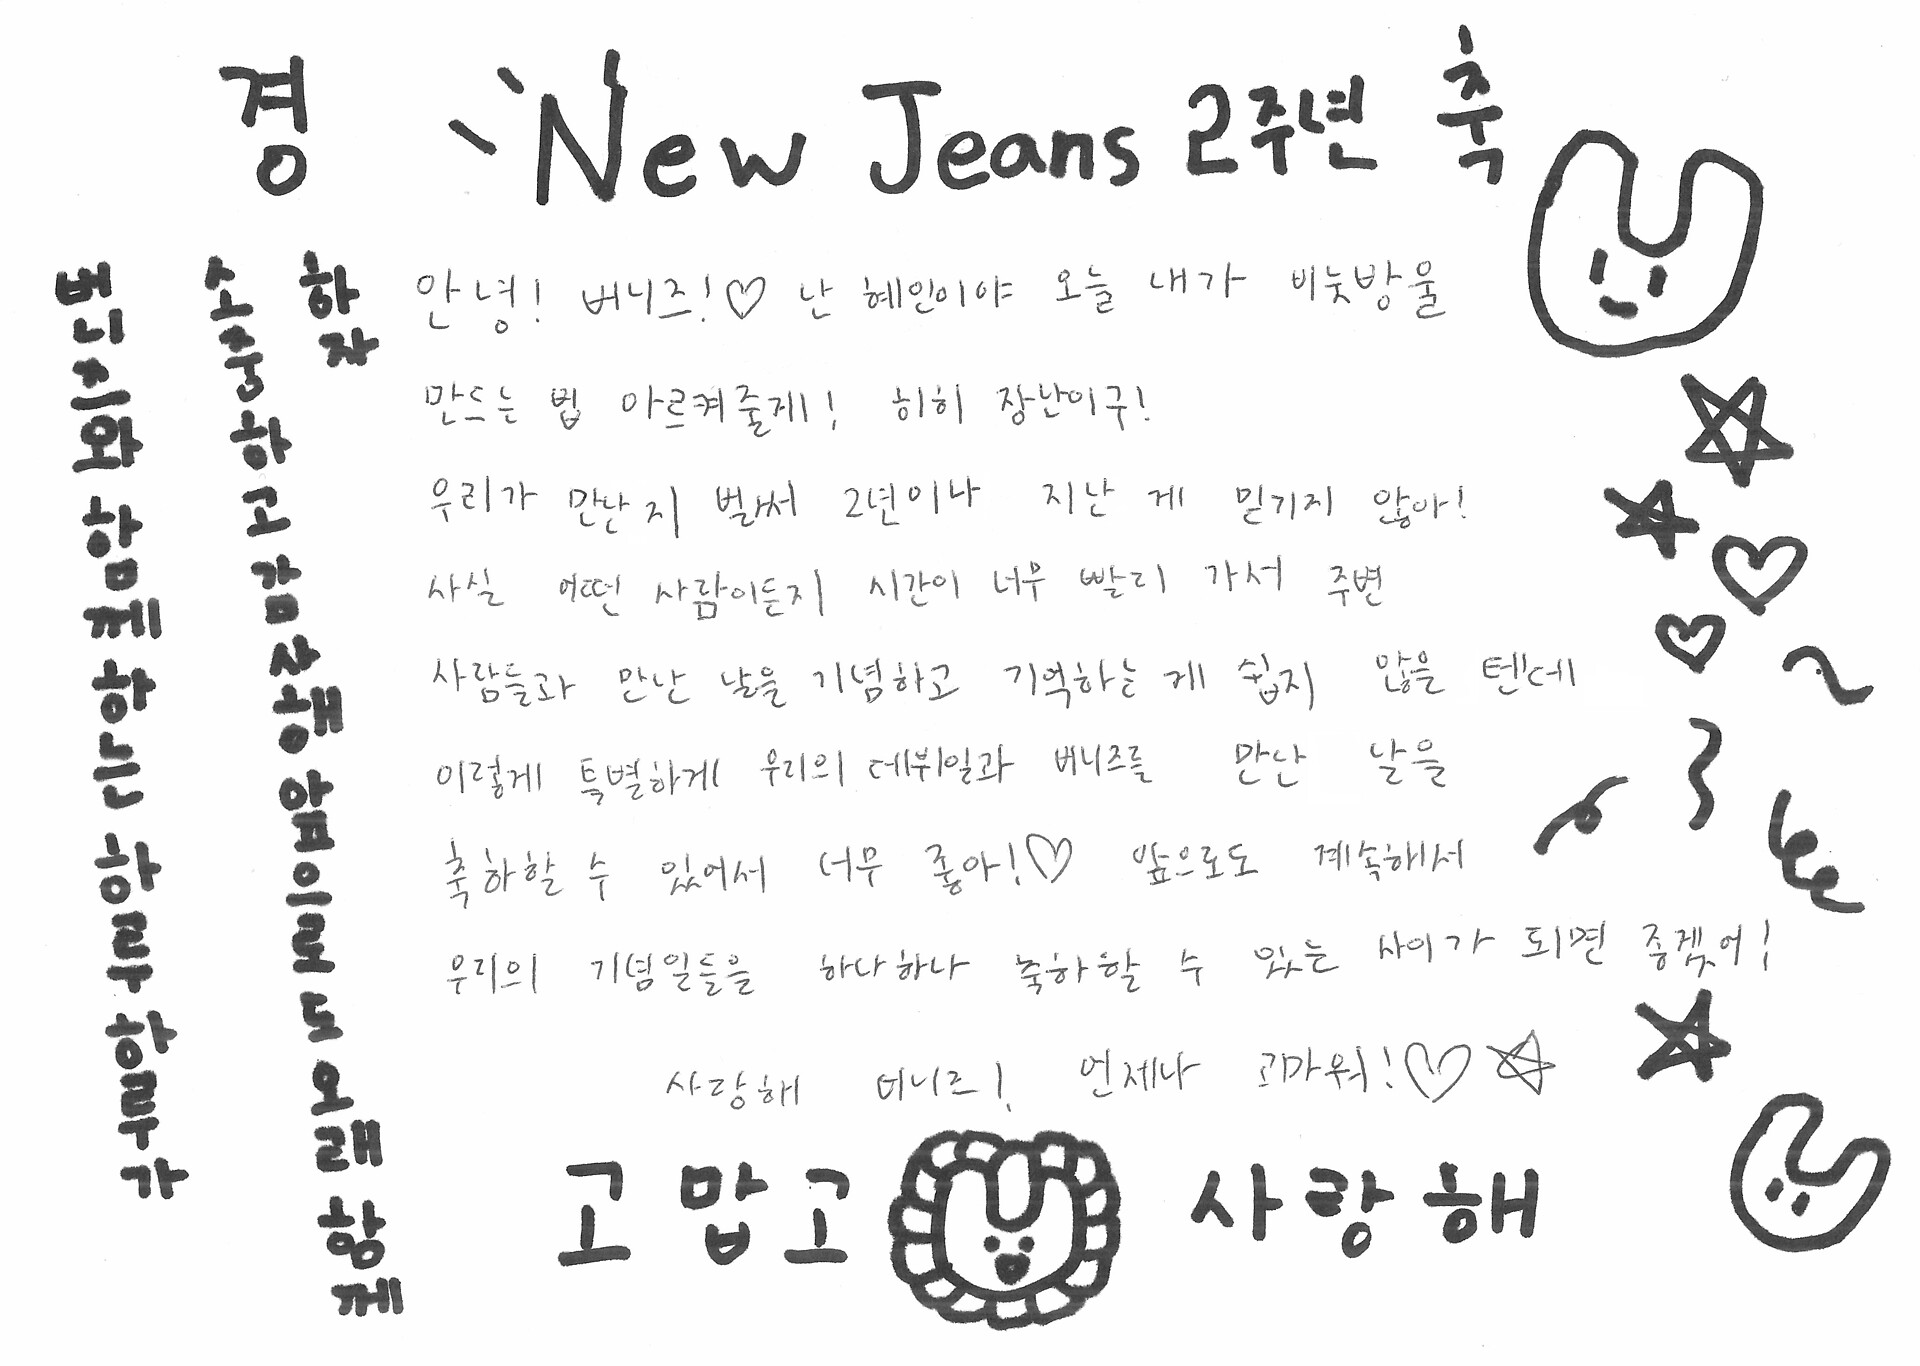 경 New Jeans 2주년 축
안녕! 버니즈!♡ 난 혜인이야 오늘 내가 비눗방울
만드는 법 아르켜줄게! 히히 장난이구!
우리가 만난지 벌써 2년이나 지난 게 믿기지 않아!
사실 어떤 사람이든지 시간이 너무 빨리 가서 주변
사람들과 만난 날을 기념하고 기억하는 게 쉽지 않을 텐데
이렇게 특별하게 우리의 데뷔일과 버니즈를 만난 날을
축하할 수 있어서 너무 좋아!♡ 앞으로도 계속해서
우리의 기념일들을 하나하나 축하할 수 있는 사이가 되면 좋겠어!
사랑해 버니즈! 언제나 고마워!♡☆
고맙고 사랑해
버니즈와 함께 하는 하루 하루가
소중하고 감사해 앞으로도 오래 함께
하자